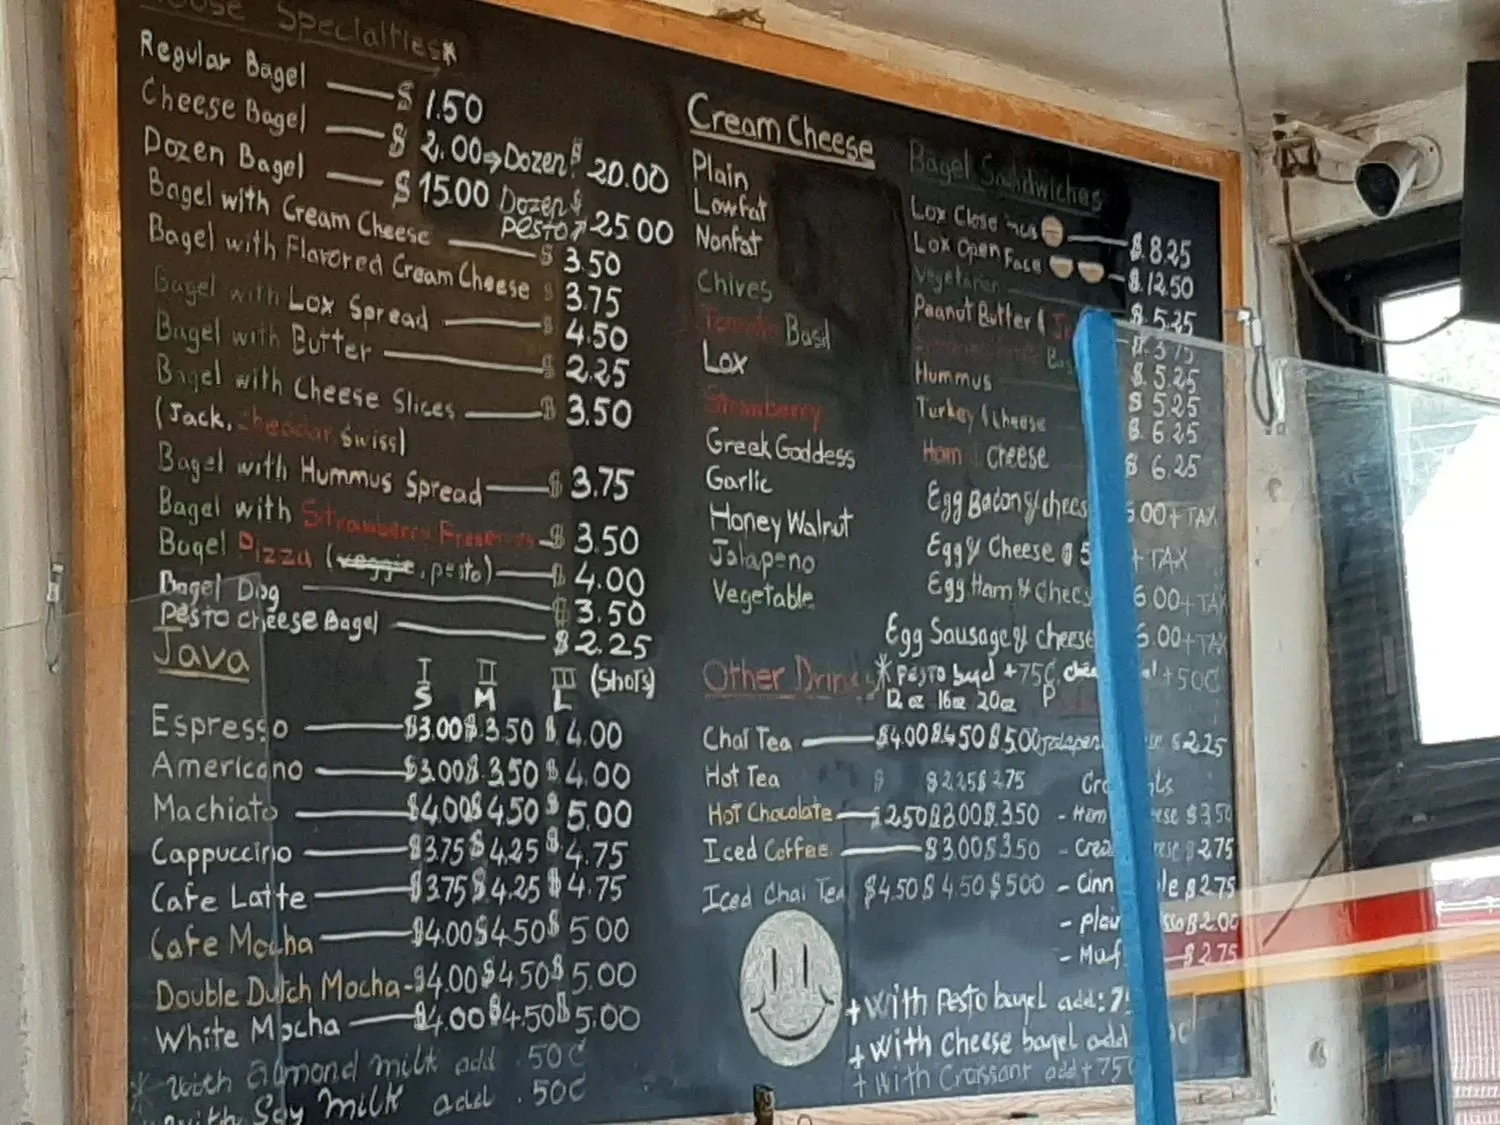 Specialties*
Regular Bagel $ 1.50
Cheese Bagel $ 2.00 → Dozen $ 20.00
Dozen Bagel $ 15.00 Dozen $
Pesto 25.00
Bagel with Cream Cheese $ 3.50
Bagel with Flavored Cream Cheese $ 3.75
Bagel with Lox Spread $ 4.50
Bagel with Butter $ 2.25
Bagel with Cheese Slices $ 3.50
(Jack, cheddar Swiss)
Bagel with Hummus Spread $ 3.75
Bagel with Strawberry Preserves $ 3.50
Bagel Pizza (veggie, pesto) $ 4.00
Bagel Dog $ 3.50
Pesto cheese Bagel $ 2.25
Java
I II III (Shots)
S M L
Espresso $3.00 $3.50 $4.00
Americano $3.00 $3.50 $4.00
Machiato $4.00 $4.50 $5.00
Cappuccino $3.75 $4.25 $4.75
Cafe Latte $3.75 $4.25 $4.75
Cafe Mocha $4.00 $4.50 $5.00
Double Dutch Mocha - $4.00 $4.50 $5.00
White Mocha $4.00 $4.50 $5.00
* with almond milk add .50¢
with Soy Milk add .50¢
Cream Cheese
Plain
Lowfat
Nonfat
Chives
Tomato Basil
Lox
Strawberry
Greek Goddess
Garlic
Honey Walnut
Jalapeno
Vegetable
Bagel Sandwiches
Lox Close $ 8.25
Lox Open Face $ 12.50
Vegetarian $ 5.25
Peanut Butter & $ 3.75
$ 5.25
Hummus $ 5.25
Turkey & Cheese $ 6.25
Ham & Cheese $ 6.25
Egg Bacon & chees 6.00 + TAX
Egg & Cheese $ 5 + TAX
Egg Ham & Chees 6.00 + TAX
Egg Sausage & cheese 6.00 + TAX
* Pesto bagel +75¢ +50¢
Other Drinks
12 oz 16oz 20oz
Chai Tea $4.00 $4.50 $5.00
Hot Tea $ $2.25 $2.75
Hot Chocolate $2.50 $3.00 $3.50
Iced Coffee $3.00 $3.50
Iced Chai Tea $4.50 $4.50 $5.00
Jalapen $2.25
- Ham $3.50
- Crea $2.75
- Cinn $2.75
- Plain $2.00
- Muf $2.75
+ with Pesto bagel add: 7
+ with Cheese bagel add
+ with Croissant add + 75¢